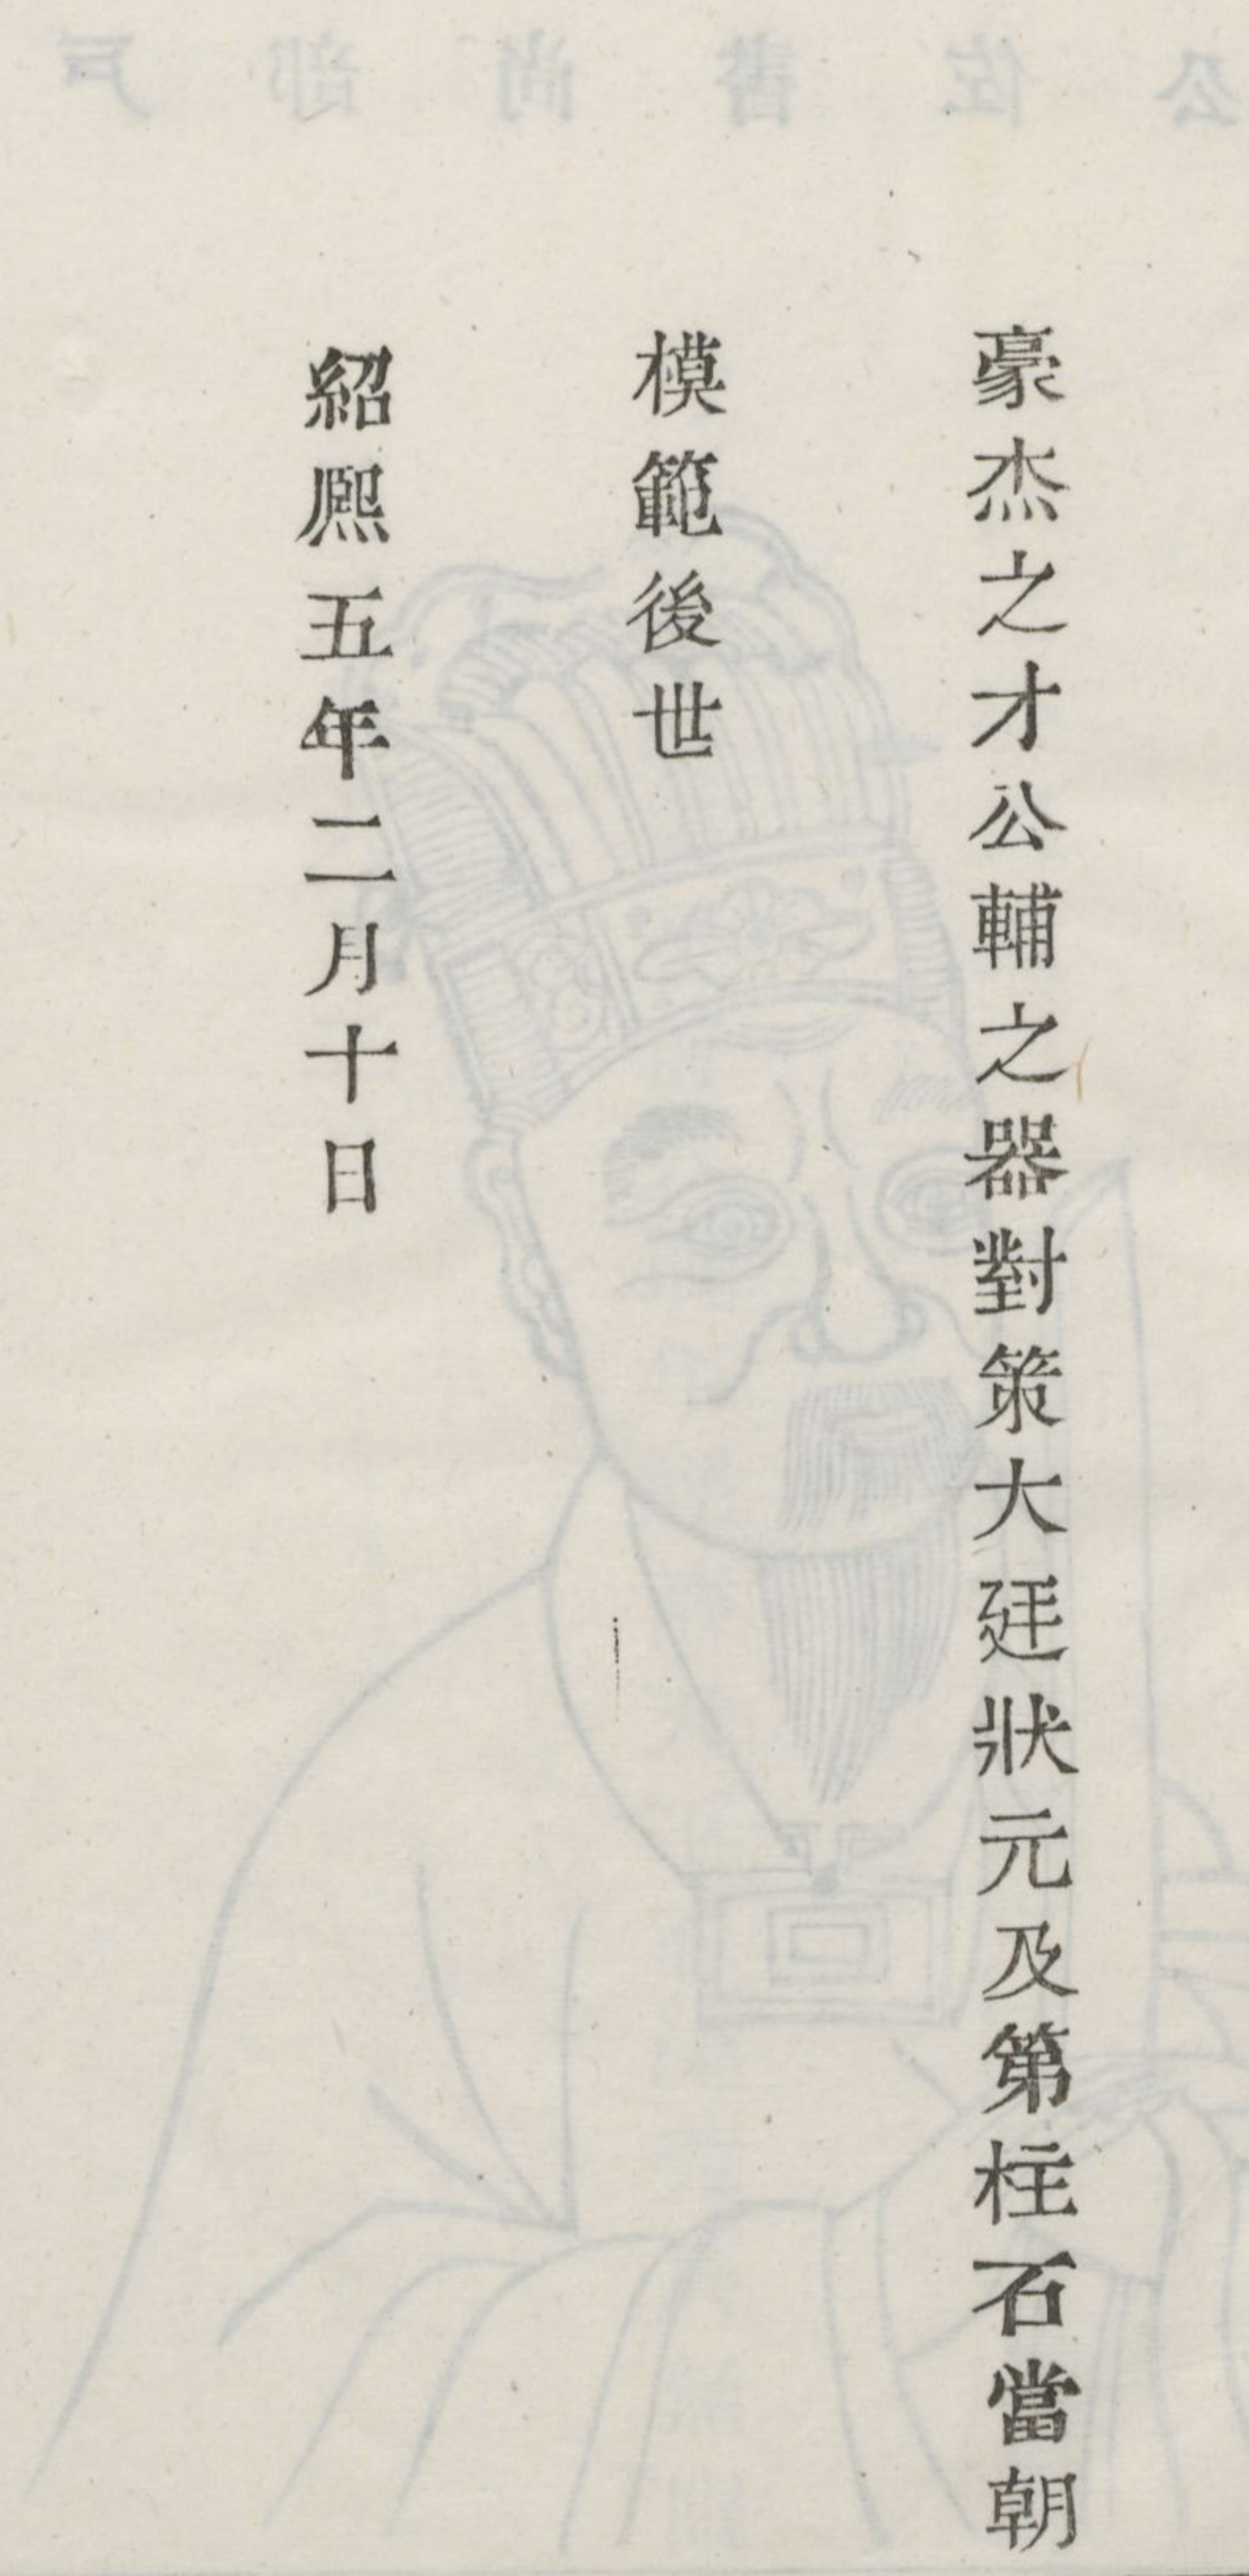 豪杰之才公輔之器對策大廷狀元及第柱石當朝
模範後世
紹熈五年二月十日